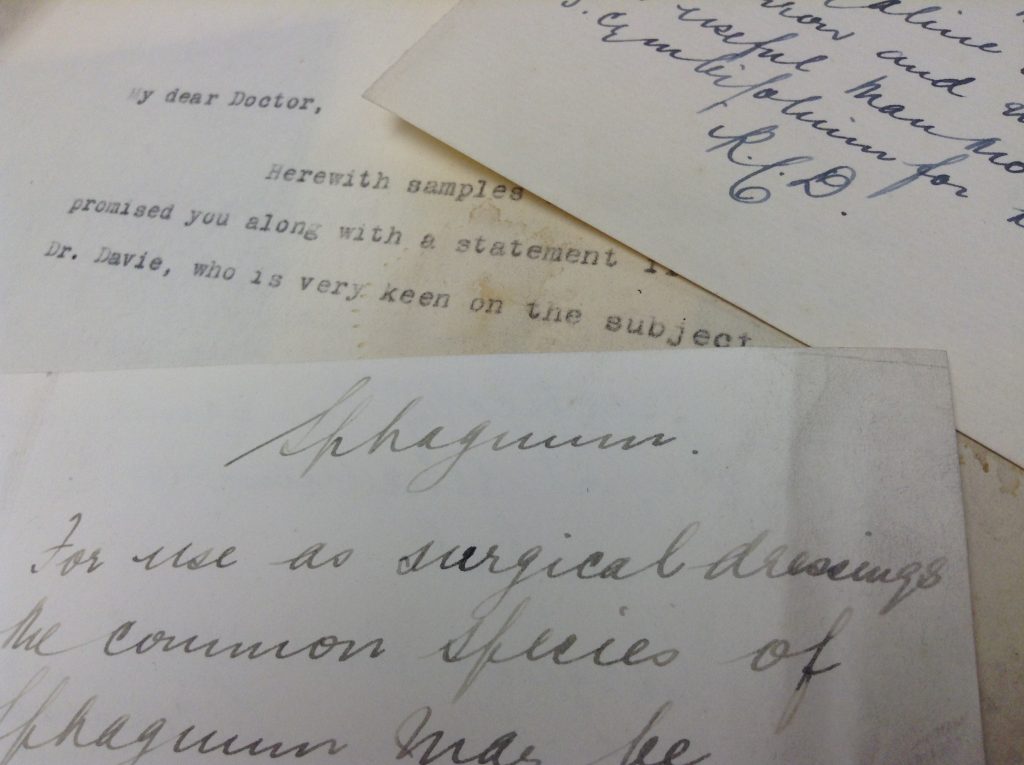 My dear Doctor,
Herewith samples
promised you along with a statement
Dr. Davie, who is very keen on the subject
row and
useful man
S. cymbifolium for
R.C.D.
Sphagnum.
For use as surgical dressings
the common species of
Sphagnum may be